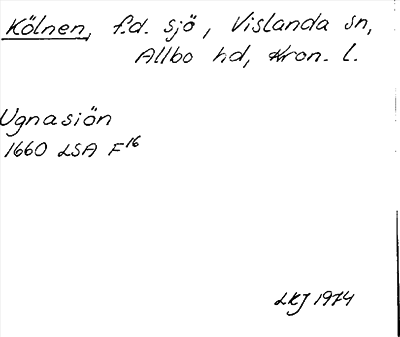 Kölnen, f.d. sjö, Vislanda sn,
Allbo hd, Kron. l.
Ugnasiön
1660 LSA F16
LKJ 1974